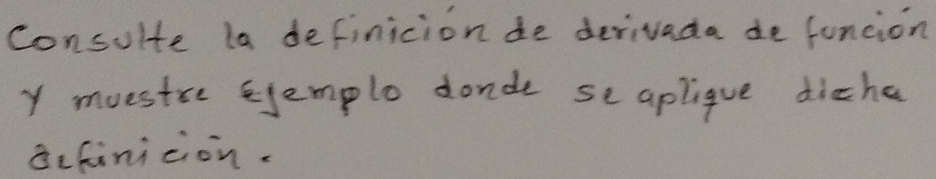 Consulte la definición de derivada de función
y muestre Ejemplo donde se aplique dicha
definición.